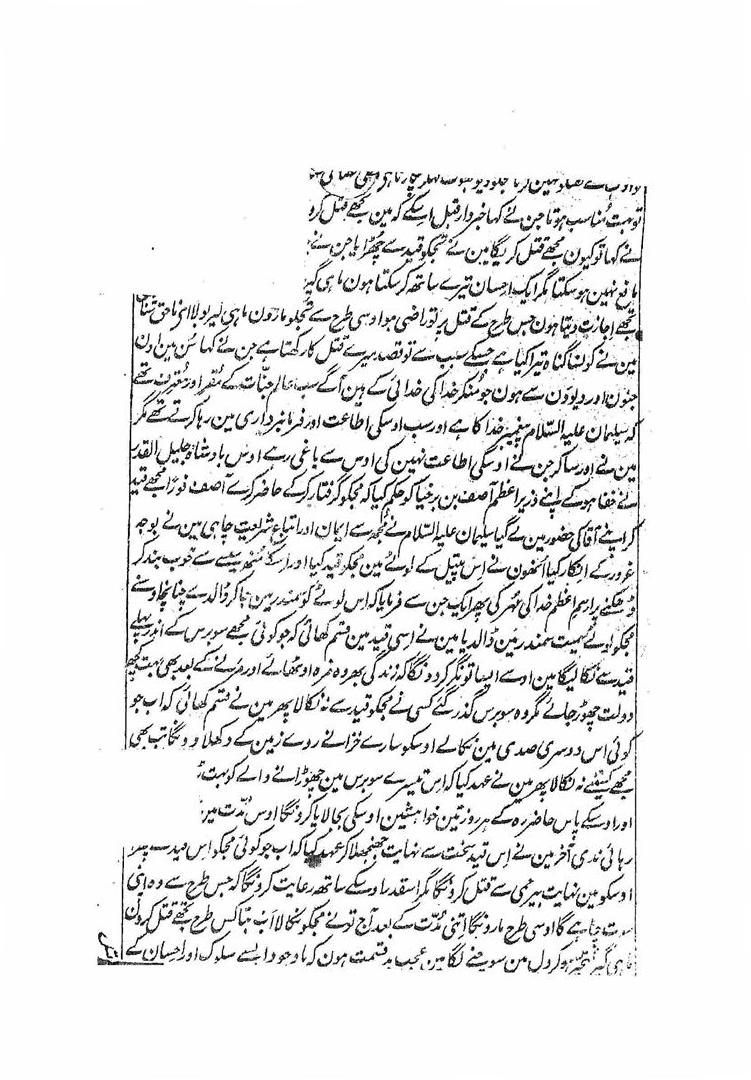 توبہت مُناسب ہوتا جن نے کہا خبردار قبل اسکے کہ مین تجھے قتل کرو
نے کہا تو کیون مجھے قتل کریگا مین نے تجکو قید سے چُھڑایا جن نے
مانع نہین ہو سکتا مگر ایک احسان تیرے ساتھ کر سکتا ہون ماہی گیر
تجھے اجازت دیتا ہون جس طرح کے قتل پر تو راضی ہو اوسی طرح سے تجکو مارون ماہی گیر بولا ای ناحق شناس
مین نے کونسا گناہ تیرا کیا ہے جسکے سبب سے تو قصد میرے قتل کا رکھتا ہے جن نے کہا سُن مین اون
جنون اور دیوون سے ہون جو مُنکر خدا کی خدائی کے ہین آگے سب عالم جنّات کے مُقر اور معترف تھے
کہ سلیمان علیہ السّلام پیغمبر خدا کا ہے اور سب اوسکی اطاعت اور فرمانبرداری مین رہا کرتے تھے مگر
مین نے اور ساکر جن نے اوسکی اطاعت نہین کی اوس سے باغی رہے اوس بادشاہ جلیل القدر
نے خفا ہو کے اپنے وزیر اعظم آصف بن برخیا کو حکم کیا کہ مجکو گرفتار کر کے حاضر کرے آصف فورًا مجھے قید
کر اپنے آقا کی حضور مین لے گیا سلیمان علیہ السّلام نے مُجھ سے ایمان اور اتباع شریعت چاہی مین نے بوجہ
غرور کے انکار کیا اُنھون نے اِس پیتل کے لوٹے مین مجکو قید کیا اور اسکے مُنھ سیسے سے خوب بند کر
ڈھکنے پر اسم اعظم خدا کی مُہر کی پھر ایک جن سے فرمایا کہ اس لوٹے کو سمندر مین جا کر ڈالدے چنانچہ اوسنے
مجکو لوٹے سمیت سمندر مین ڈالدیا مین نے اِسی قید مین قسم کھائی کہ جو کوئی مجھے سو برس کے اندر پہلے
قید سے نکالیگا مین اوسے ایسا تونگر کر دونگا کہ زندگی بھر وہ مزہ اوٹھائے اور مرنے کے بعد بھی بہت کچھ
دولت چھوڑ جائے مگر وہ سو برس گذر گئے کسی نے مجکو قید سے نہ نکالا پھر مین نے قسم کھائی کہ اب جو
کوئی اس دوسری صدی مین نکالے اوسکو سارے خزانے روے زمین کے دکھلا دونگا تب بھی
مجھے کسینے نہ نکالا پھر مین نے عہد کیا کہ اِس تیسرے سو برس مین چھوڑانے والے کو بہت
اور اوسکے پاس حاضر رہ کے ہر روز تین خواہشین اوسکی بجا لایا کرونگا اوس مُدّت مین
رہائی ندی آخر مین نے اِس قید سخت سے نہایت جھنجھلا کر عہد کیا کہ اب جو کوئی مجکو اس قید سے
اوسکو مین نہایت بیرحمی سے قتل کرونگا مگر اسقدر اوسکے ساتھ رعایت کرونگا کہ جس طرح سے وہ اپنی
موت چاہے گا اوسی طرح مارونگا اتنی مُدّت کے بعد آج تونے مجکو نکالا اب بتا کس طرح تجھے قتل کرون
ماہی گیر متحیّر ہو کر دل مین سوچنے لگا مین عجب بدقسمت ہون کہ باوجود ایسے سلوک اور اِحسان کے